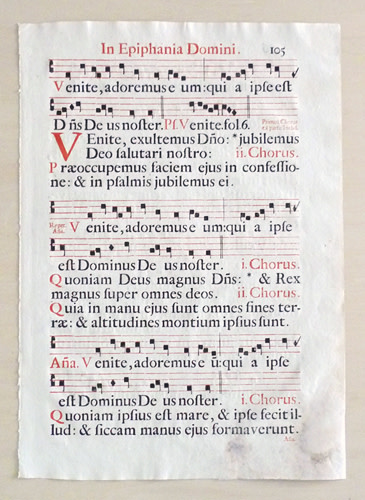 In Epiphania Domini. 105
Venite, adoremus e um: qui a ipse est
Dñs De us noster. Ps. Venite. fol. 6.
VEnite, exultemus Dño: * jubilemus
Deo salutari nostro: ii. Chorus.
Præoccupemus faciem ejus in confessio-
ne: & in psalmis jubilemus ei.
Venite, adoremus e um: qui a ipse
est Dominus De us noster. i. Chorus.
Quoniam Deus magnus Dñs: * & Rex
magnus super omnes deos. ii. Chorus.
Quia in manu ejus sunt omnes fines ter-
ræ: & altitudines montium ipsius sunt.
Aña. Venite, adoremus e ũ: qui a ipse
est Dominus De us noster. i. Chorus.
Quoniam ipsius est mare, & ipse fecit il-
lud: & siccam manus ejus formaverunt.